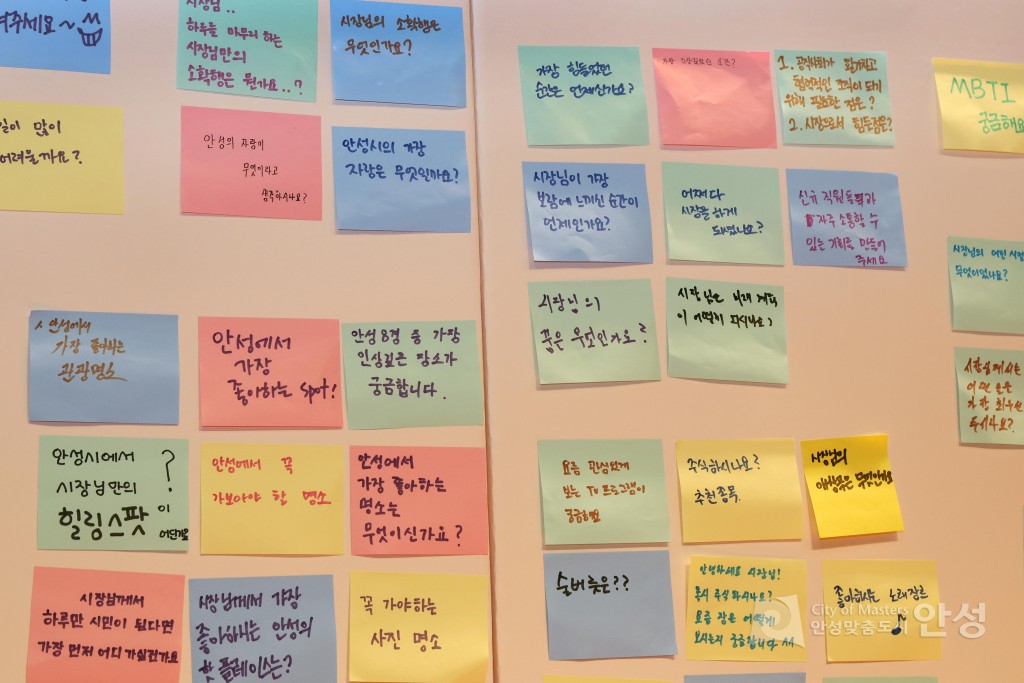 겨주세요~
시장님..
하루를 마무리 하는
시장님만의
소확행은 뭔가요..?
시장님의 소확행은
무엇인가요?
일이 많이
어려울까요?
안성의 자랑이
무엇이라고
생각하시나요?
안성시의 가장
자랑은 무엇일까요?
안성에서
가장 좋아하는
관광명소
안성에서
가장
좋아하는 spot!
안성8경 중 가장
인상깊은 장소가
궁금합니다.
안성시에서
시장님만의
힐링스팟이
어딘가요?
안성에서 꼭
가보아야 할 명소
안성에서
가장 좋아하는
명소는
무엇이신가요?
시장님께서
하루만 시민이 된다면
가장 먼저 어디 가실건가요
시장님께서 가장
좋아하시는 안성의
핫플레이스는?
꼭 가야하는
사진 명소
가장 힘들었던
순간은 언제인가요?
1. 공직사회가 활기차고
협력적인 조직이 되기
위해 필요한 점은?
2. 시장으로서 힘든점은?
MBTI
궁금해요
시장님이 가장
보람에 느끼신 순간이
언제인가요?
어쩌다
시장을 하게
되셨나요?
신규 직원들과
자주 소통할 수
있는 기회를 만들어
주세요
시장님의 어린 시절
무엇이었나요?
시장님의
꿈은 무엇인가요?
시장님은 미래 계획
이 어떻게 되시나요?
시장님께서는
어떤 일을
가장 최우선
두시나요?
요즘 관심있게
보는 TV 프로그램이
궁금해요
주식하시나요?
추천종목.
시장님의
애창곡은 무엇인가요
술버릇은??
안녕하세요 시장님!
혹시 주식하시나요?
요즘 장은 어떻게
보시는지 궁금합니다
좋아하시는 노래장르
City of Masters
안성맞춤도시 안성